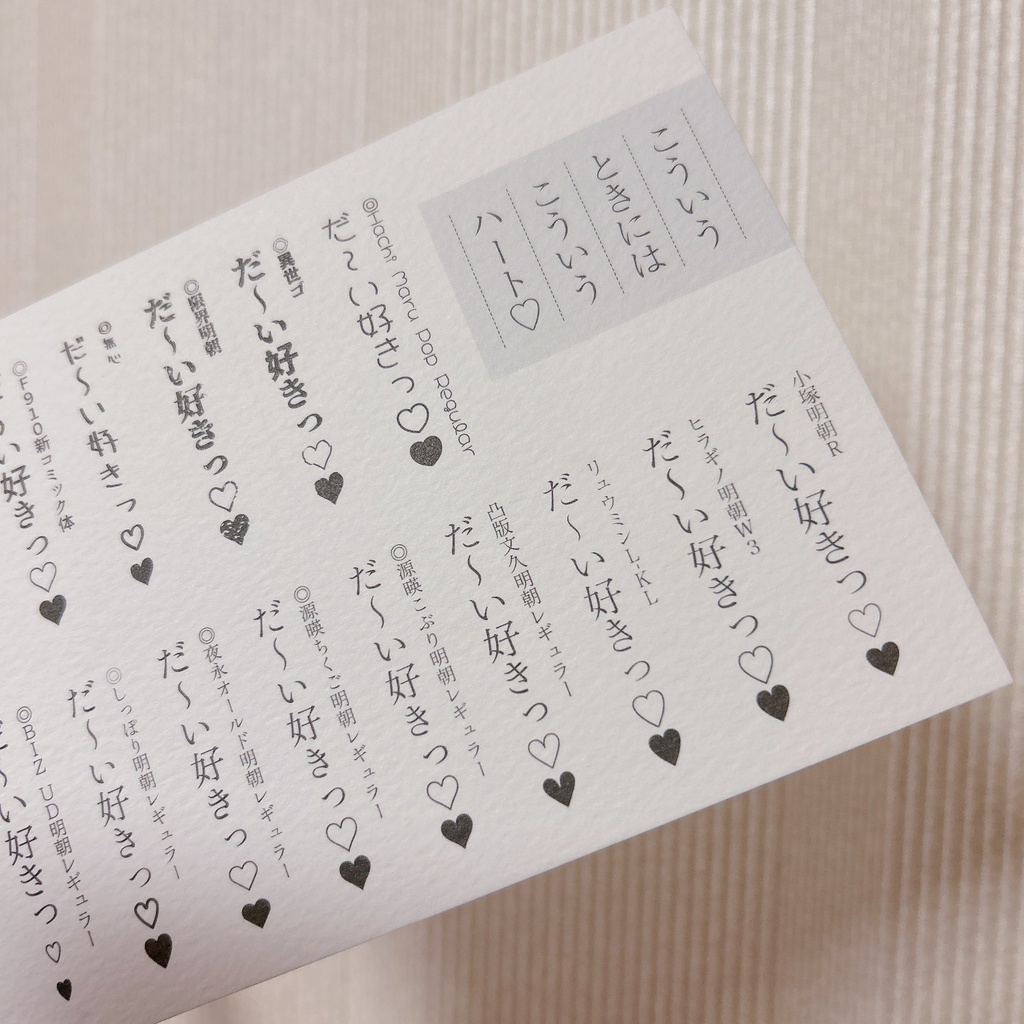 こういう
ときには
こういう
ハート♡
◎Hachi Maru Pop Regular
だ～い好きっ♡♥
◎異世ゴ
だ～い好きっ♡♥
◎限界明朝
だ～い好きっ♡♥
◎無心
だ～い好きっ♡♥
◎F910新コミック体
い好きっ♡♥
小塚明朝R
だ～い好きっ♡♥
ヒラギノ明朝W3
だ～い好きっ♡♥
リュウミンL-KL
だ～い好きっ♡♥
凸版文久明朝レギュラー
だ～い好きっ♡♥
◎源暎こぶり明朝レギュラー
だ～い好きっ♡♥
◎源暎ちくご明朝レギュラー
だ～い好きっ♡♥
◎夜永オールド明朝レギュラー
だ～い好きっ♡♥
◎しっぽり明朝レギュラー
だ～い好きっ♡♥
◎BIZ UD明朝レギュラー
だ～い好きっ♡♥